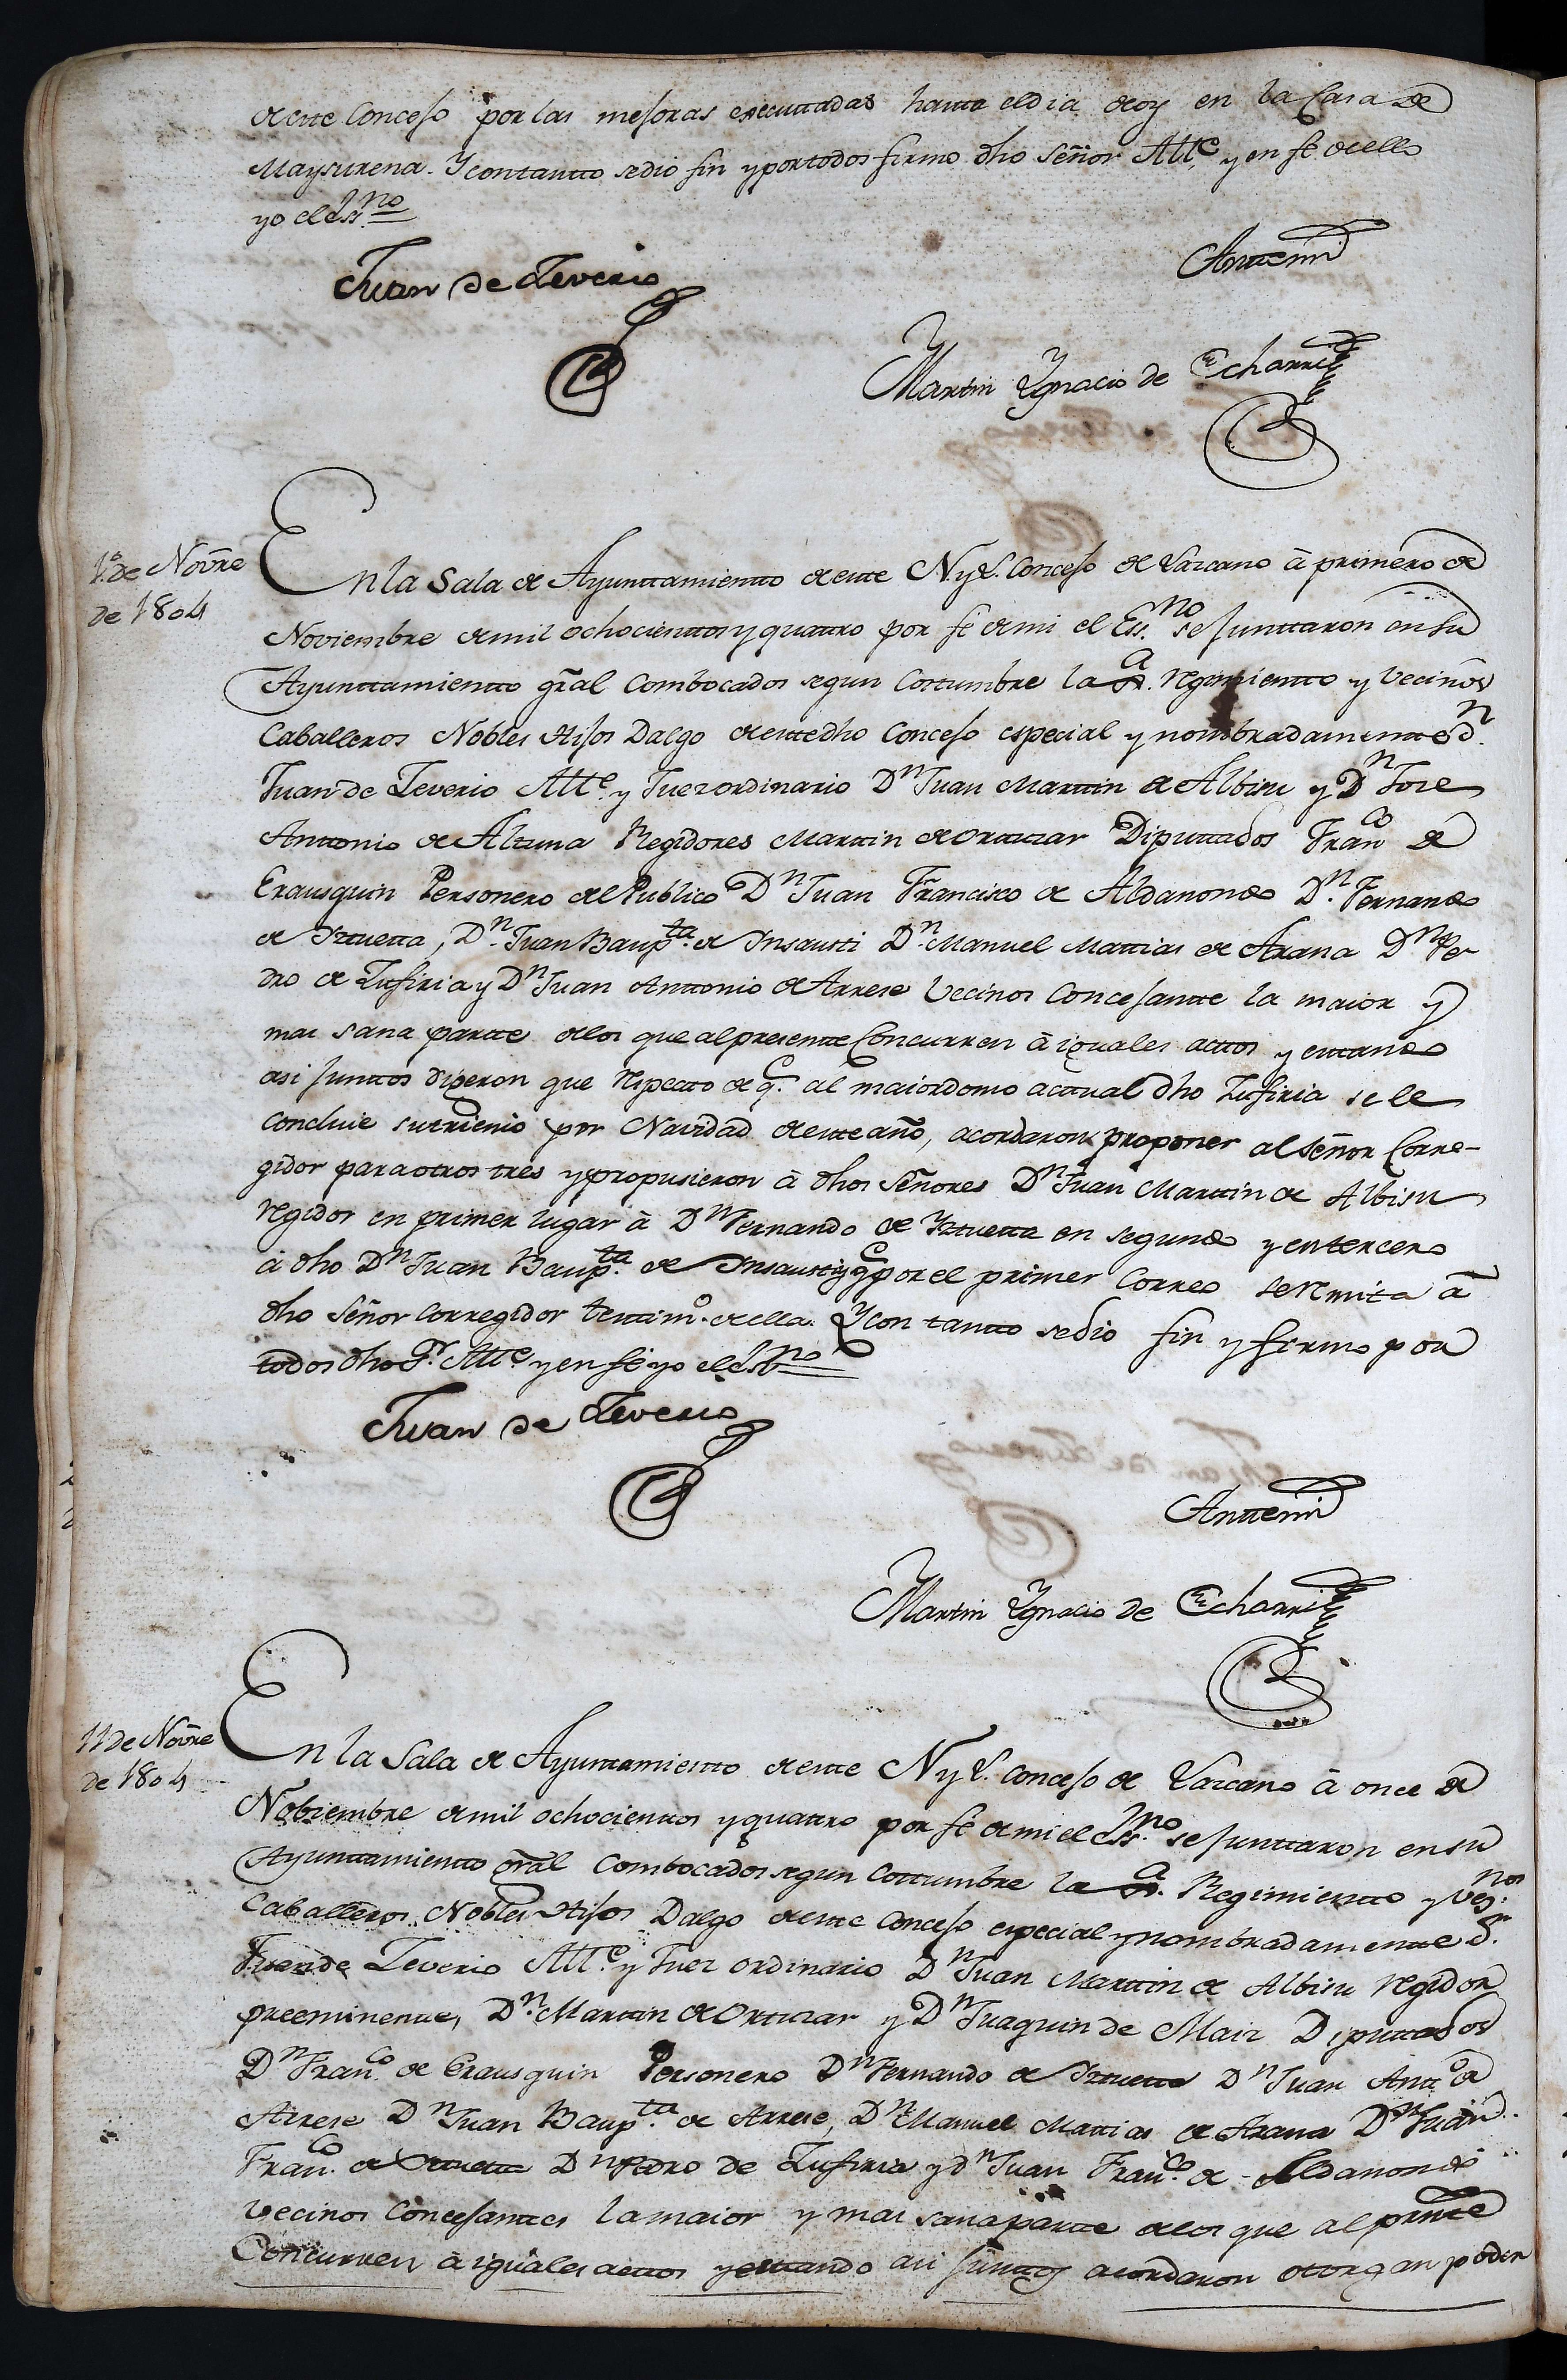 de este Concejo por las mejoras executtadas hasta el dia de oy en la Casa de
Maysurena. Y con tantto se dio fin y por todos firmo dho Señor Alle. y en fe de ello
yo el Essno
Juan de Teverio
Anttemi
Martin Ygnacio de Echarri
1º de Novre
de 1804
En la Sala de Ayunttamientto de este N. y L. Concejo de Lazcano à primero de
Noviembre de mil ochocienttos y quattro por fe de mi el Essno. se junttaron en su
Ayunttamientto gral Combocados segun Costumbre la Regimientto y Vecinos
Caballeros Nobles Hijos Dalgo de este dho Concejo especial y nombradamente Dn.
Juan de Teverio Alle. y Juez ordinario Dn Juan Marttin de Albisu y Dn Jose
Anttonio de Altuna Regidores Marttin de Ortuzar Diputtados Franco de
Erausquin Personero del Publico Dn Juan Francisco de Aldanondo Dn. Fernando
de Yztuetta, Dn. Juan Baupta. de Insausti Dn. Manuel Mattias de Arana Dn Pe-
dro de Lufiria y Dn Juan Anttonio de Arrese Vecinos Concejantte la maior y
mas sana partte de los que al presente Concurren à iguales acttos y estando
asi junttos dijeron que respectto de q.e al maiordomo acttual dho Lufiria se le
Concluie su trienio por Navidad de este año, acordaron proponer al Señor Corre-
gidor para otros tres y propusieron à dhos Señores Dn. Juan Marttin de Albisu
regidor en primer lugar à Dn Fernando de Yztuetta en segundo y en tercero
à dho Dn Juan Baupta. de Insausti y q.e por el primer Correo se remita à
dho Señor Corregidor testtimo. de ella. Y con tantto se dio fin y firmo por
todos dho Sr. Alle. y en fe yo el Essno
Juan de Teverio
Anttemi
Martin Ygnacio de Echarri
11 de Novre
de 1804
En la Sala de Ayunttamientto de este N y L. Concejo de Lazcano à once de
Nobiembre de mil ochocienttos y quattro por fe de mi el Essno. se junttaron en su
Ayunttamientto gral Combocados segun Costtumbre la Regimientto y Vez.nos
Caballeros Nobles Hijos Dalgo de este Concejo especial y nombradamentte Dn.
Juan de Teverio Alle. y Juez ordinario Dn Juan Marttin de Albisu regidor
preeminente, Dn. Marttin de Ortuzar y Dn Juaquin de Maiz Diputtados
Dn Franco. de Erausquin Personero Dn Fernando de Yztuetta Dn Juan Antto. de
Arrese Dn Juan Baupta. de Arrese, Dn Manuel Mattias de Arana Dn Juan
Franco. de Yztuetta Dn Pedro de Lufiria y Dn Juan Franco. de Aldanondo
Vecinos Concejanttes la maior y mas sana partte de los que al prntte
Concurren à iguales acttos y estando asi junttos acordaron ottorgar poder